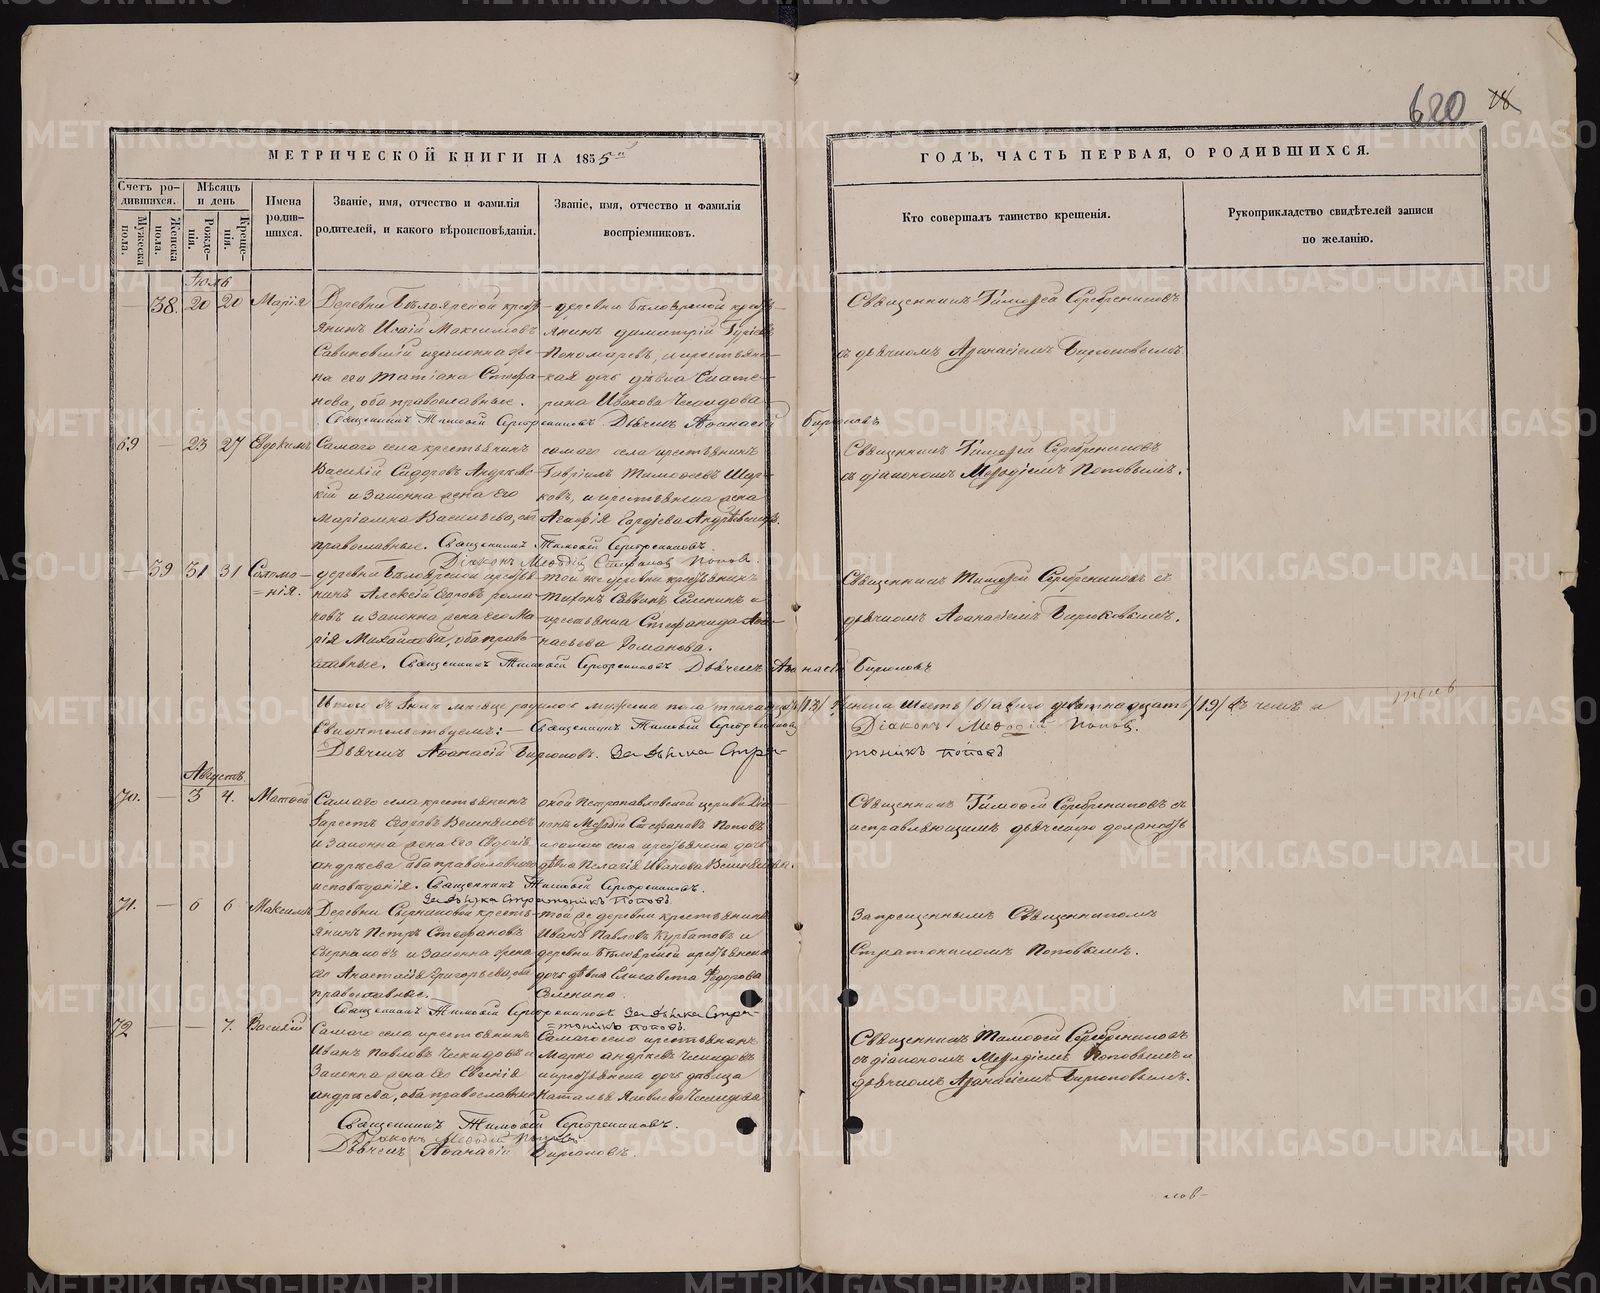 680 18
МЕТРИЧЕСКОЙ КНИГИ НА 1855й
ГОДЪ, ЧАСТЬ ПЕРВАЯ, О РОДИВШИХСЯ.
Счетъ ро-
дившихся.
Мужеска
пола.
Женска
пола.
Мѣсяцъ
и день
Рожде-
нія.
Креще-
нія.
Имена
родив-
шихся.
Званіе, имя, отчество и фамилія
родителей, и какого вѣроисповѣданія.
Званіе, имя, отчество и фамилія
воспріемниковъ.
Кто совершалъ таинство крещенія.
Рукоприкладство свидѣтелей записи
по желанію.
Іюль
— 38. 20 20 Марія
Деревни Бѣлоярской кресть-
янинъ Исаій Максимовъ
Савиновскій и законная же-
на его Татіана Стефа-
нова, оба православные.
деревни Бѣлоярской кресть-
янинъ Димитрій
Пономаревъ, и крестьянс-
кая дочь дѣвка Екате-
рина Иванова Чемидова
Священникъ Тимоѳей Серебренниковъ
съ дьячкомъ Аѳанасіемъ Бирюковымъ
Священникъ Тимоѳей Серебренниковъ Дьячекъ Аѳанасій Бирюковъ
69 — 23 27 Евдокимъ
Самаго села крестьянинъ
Василій Сидоровъ Андрѣев-
скій и законная жена его
Маріамна Васильева, оба
православные.
самаго села крестьянинъ
Гавріилъ Тимоѳеевъ
ковъ, и крестьянка жена
Агафія Гордѣева
Священникъ Тимоѳей Серебренниковъ
съ діакономъ Меѳодіемъ Поповымъ.
Священникъ Тимоѳей Серебренниковъ.
Діаконъ Меѳодій Стефановъ Поповъ.
— 39 31 31 Соломо-
=нія.
деревни Бѣлоярской крестья-
нинъ Алексѣй Егоровъ Рома-
новъ и законная жена его Ма-
рія Михайлова, оба право-
славные.
той же деревни крестьянинъ
Тихонъ Саввинъ Селенинъ и
крестьянка Стефанида Аѳа-
насьева Романова.
Священникъ Тимоѳей Серебренниковъ съ
дьячкомъ Аѳанасіемъ Бирюковымъ.
Священникъ Тимоѳей Серебренниковъ Дьячекъ Аѳанасій Бирюковъ
Итого въ Іюлѣ мѣсяцѣ родилось мужеска пола тринадцать /13/ женска шесть /6/ а всего девятнадцать /19/ въ чемъ и
Свидѣтельствуемъ: — Священникъ Тимоѳей Серебренниковъ
Діаконъ Меѳодій Поповъ.
Дьячекъ Аѳанасій Бирюковъ. За дьячка Стра-
тоникъ Поповъ
Августъ
70. — 3 4. Матѳей
Самаго села крестьянинъ
Егоровъ
и законная жена его
Андрѣева оба православнаго
исповѣданія.
оной Петропавловской церкви Діа-
конъ Меѳодій Стефановъ Поповъ
и самаго села крестьянска дочь
дѣвка Пелагія Иванова
Священникъ Тимоѳей Серебренниковъ съ
исправляющимъ дьячкову должность
Священникъ Тимоѳей Серебренниковъ.
За дьячка Стратоникъ Поповъ
71. — 6 6 Максимъ
Деревни кресть-
янинъ Петръ Стефановъ
и законная жена
его Анастасія Григорьева, оба
православные.
той же деревни крестьянинъ
Иванъ Павловъ Курбатовъ и
деревни Бѣлоярской крестьянска
дочь дѣвка Елисавета Ѳедорова
Селенина.
Запрещеннымъ Священникомъ
Стратоникомъ Поповымъ.
Священникъ Тимоѳей Серебренниковъ За дьячка Стра-
=тоникъ Поповъ.
72 — — 7. Василій
Самаго села крестьянинъ
Иванъ Павловъ Чемидовъ и
Законная жена его Евгенія
Андрѣева, оба православные
Самаго села крестьянинъ
Марко Андрѣевъ Чемидовъ
и крестьянска дочь дѣвица
Наталья Яковлева Чемидова
Священникъ Тимоѳей Серебренниковъ
съ діакономъ Меѳодіемъ Поповымъ и
дьячкомъ Аѳанасіемъ Бирюковымъ.
Священникъ Тимоѳей Серебренниковъ.
Діаконъ Меѳодій Поповъ
Дьячекъ Аѳанасій Бирюковъ.
METRIKI.GASO-URAL.RU